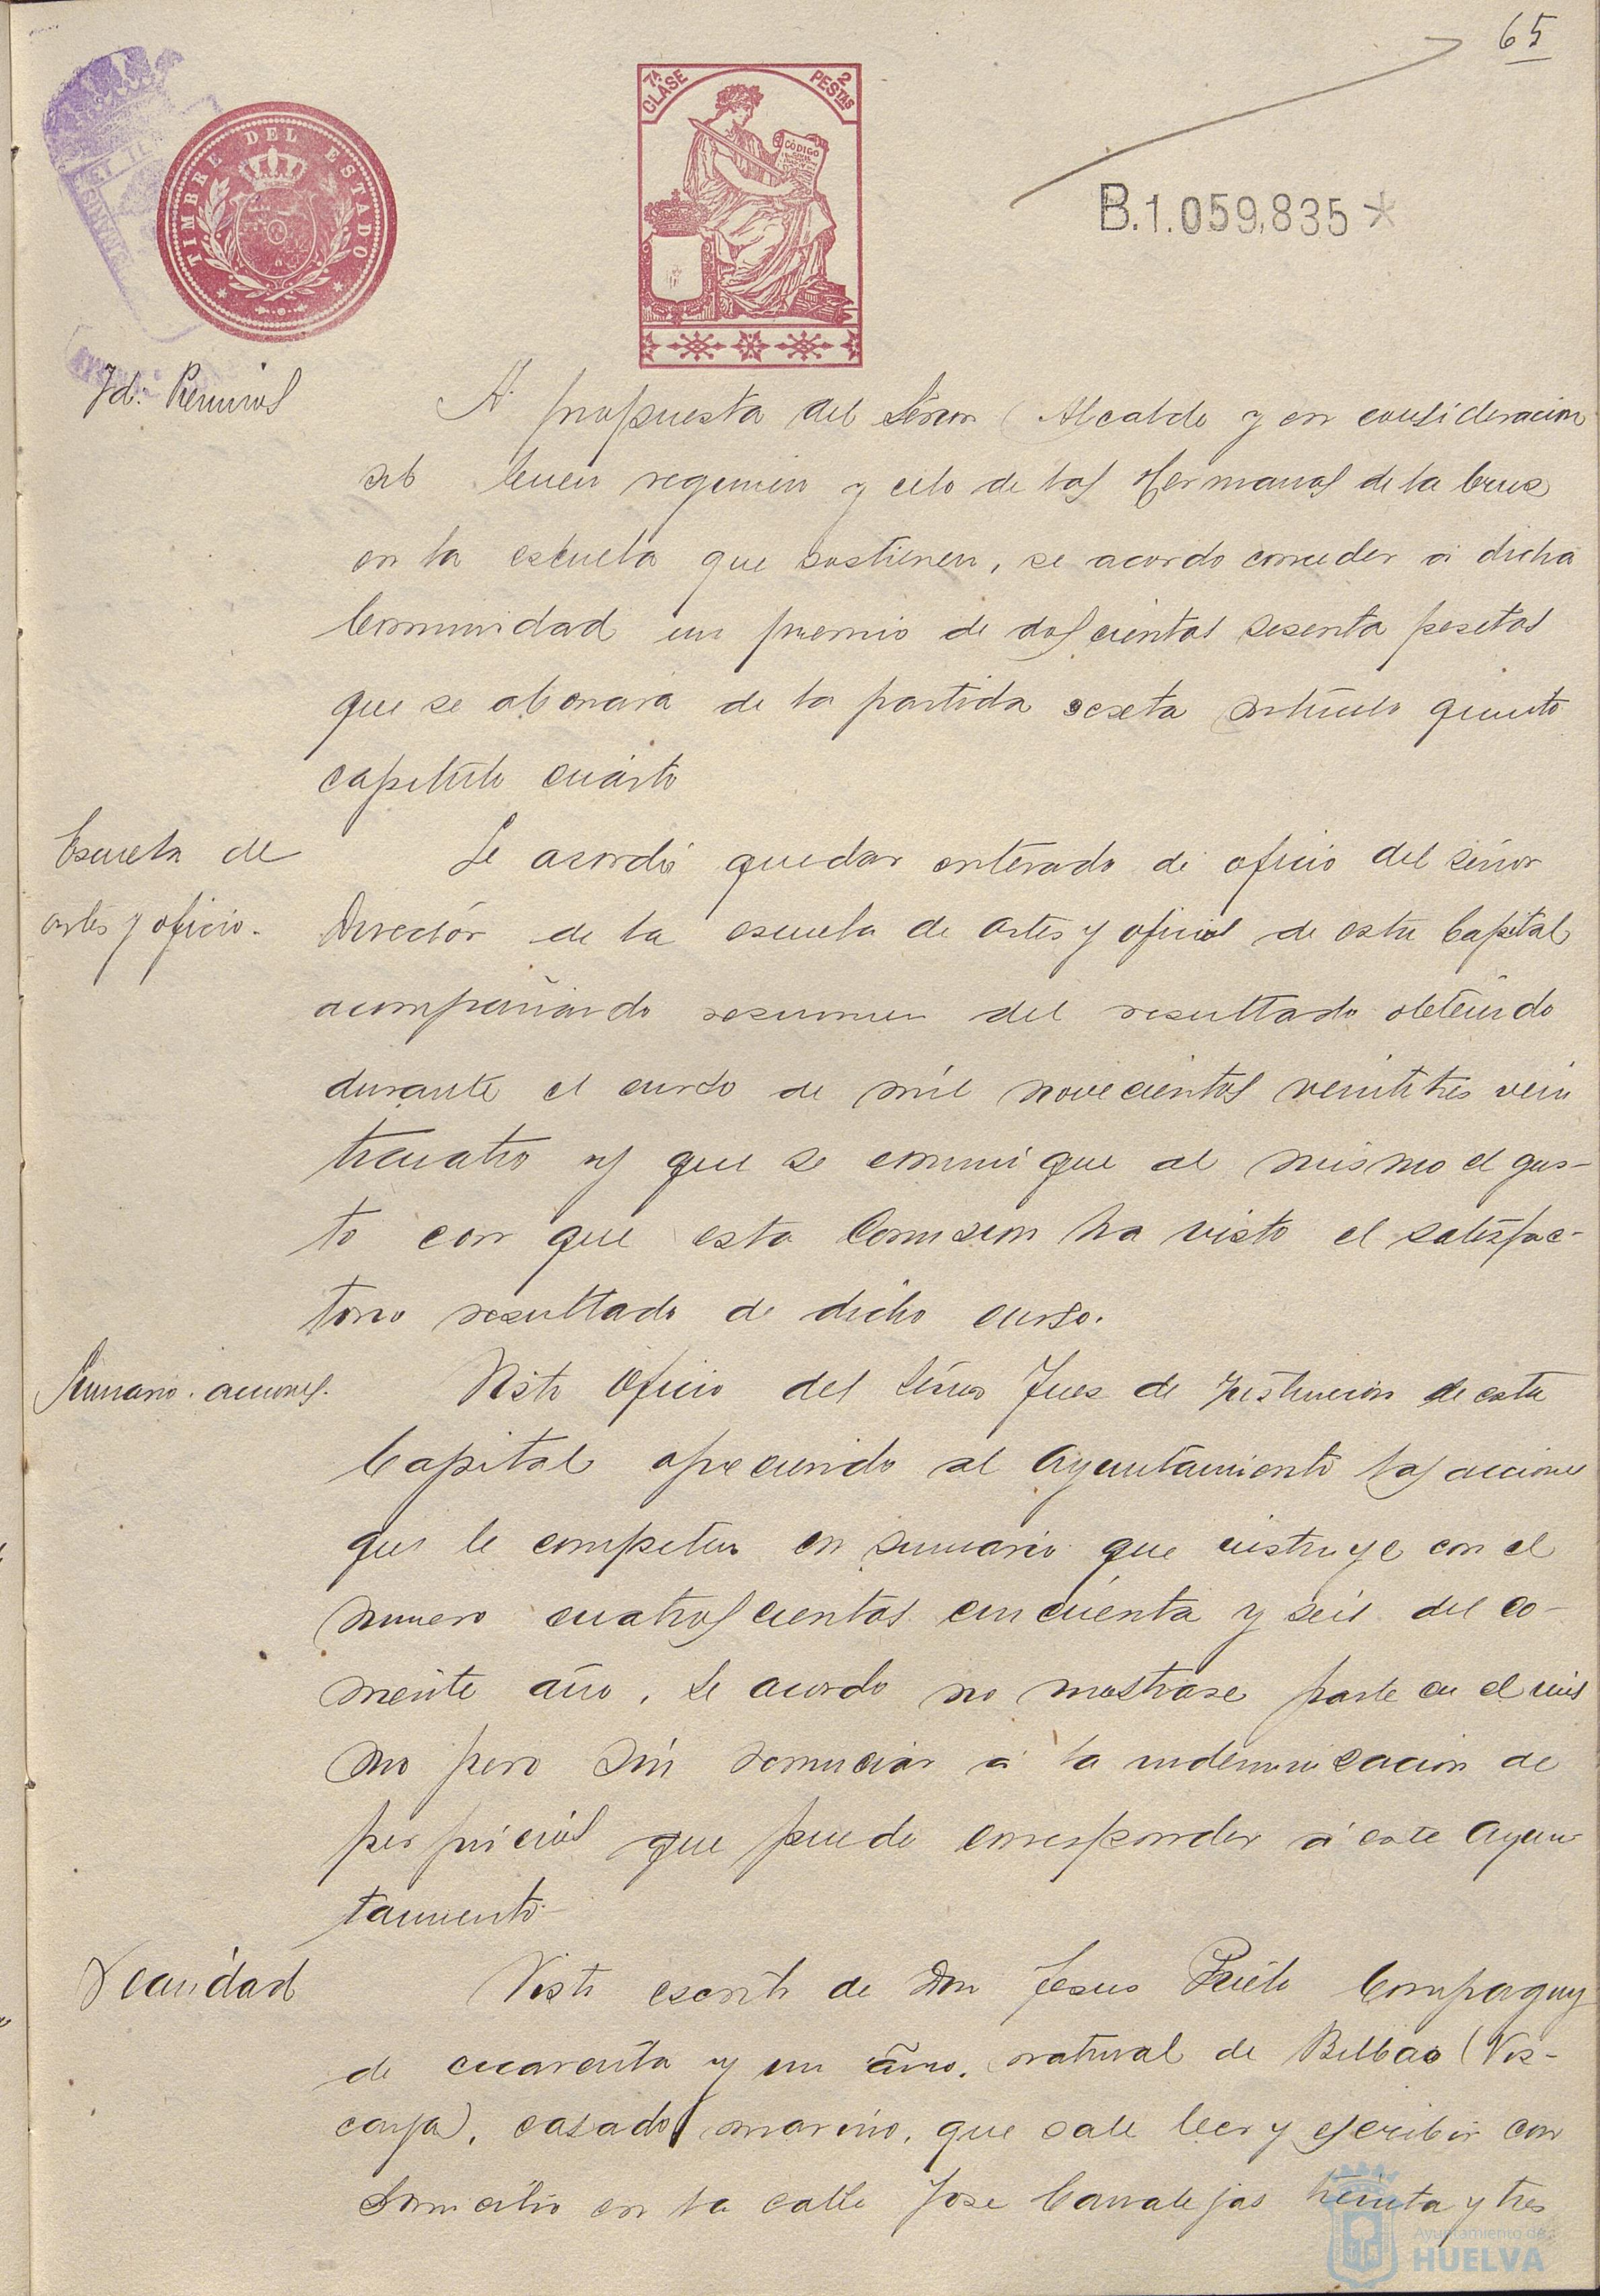 65
7ª CLASE
2 PESTAS
CÓDIGO
TIMBRE DEL ESTADO
B.1.059,835*
Id. Premios
A propuesta del Señor Alcalde y en consideracion
al buen regimen y celo de las Hermanas de la Cruz
en la escuela que sostienen, se acordo conceder á dicha
Comunidad un premio de doscientas sesenta pesetas
que se abonará de la partida sexta artículo quinto
capitulo cuarto
Escuela de
artes y oficio.
Se acordó quedar enterado de oficio del señor
Director de la escuela de artes y oficios de esta Capital
acompañando resumen del resultado obtenido
durante el curso de mil novecientos veintitres vein
ticuatro y que se comunique al mismo el gus-
to con que esta Comision ha visto el satisfac-
torio resultado de dicho curso.
Sumario. acciones.
Visto oficio del Señor Juez de instruccion de esta
Capital ofreciendo al Ayuntamiento las acciones
que le competen en sumario que instruye con el
numero cuatroscientos cincuenta y seis del co-
rriente año, se acordo no mostrase parte en el mis
mo pero sin renunciar á la indemnizacion de
perjuicios que puede corresponder á este Ayun
tamiento.
Vecindad
Visto escrito de Don Jesus Prieto Compaguy
de cuarenta y un año, natural de Bilbao (Vis-
caya), casado, marino, que sabe leer y escribir con
domicilio en la calle Jose Canalejas treinta y tres
Ayuntamiento de
HUELVA